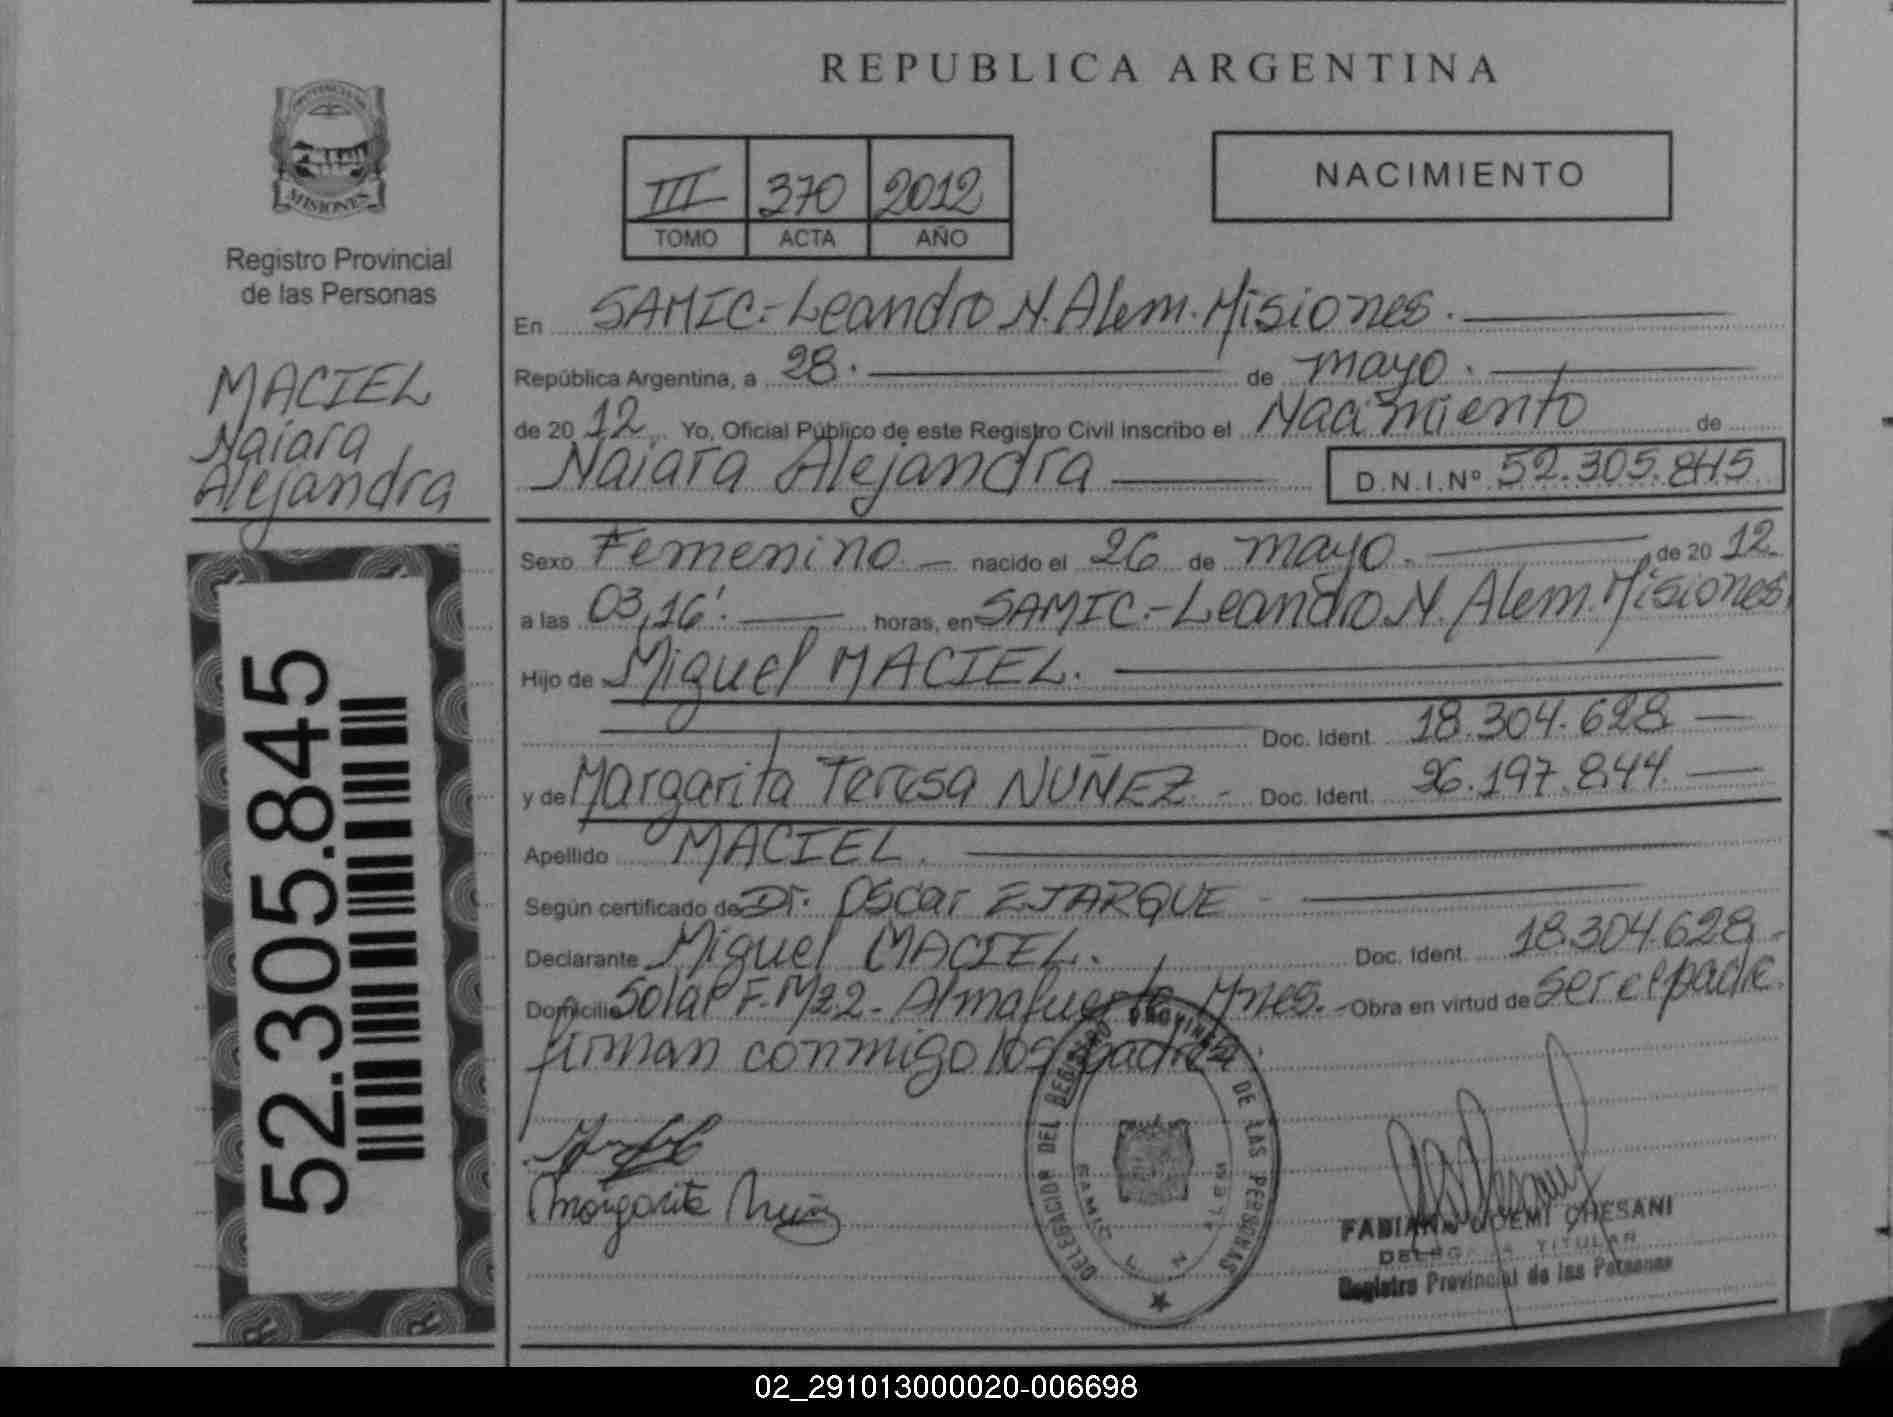 REPUBLICA ARGENTINA
PROVINCIA DE
MISIONES
Registro Provincial
de las Personas
III 370 2012
TOMO ACTA AÑO
NACIMIENTO
En SAMIC.-Leandro N. Alem. Misiones.
República Argentina, a 28. de mayo.
de 20 12. Yo, Oficial Público de este Registro Civil inscribo el Nacimiento de
Naiara Alejandra D.N.I.Nº 52.305.845
MACIEL
Naiara
Alejandra
Sexo Femenino nacido el 26 de mayo. de 20 12.
a las 03,16'. horas, en SAMIC.-Leandro N. Alem. Misiones
Hijo de Miguel MACIEL.
Doc. Ident. 18.304.628
y de Margarita Teresa NUÑEZ.- Doc. Ident. 26.197.844.
Apellido MACIEL.
Según certificado de Dr. Oscar EJARQUE -
Declarante Miguel MACIEL. Doc. Ident. 18.304.628.-
Domicilio Solar F. M22- Almafuerte Mnes.- Obra en virtud de ser el padre.
firman conmigo los padres.
52.305.845
Margarita Nuñez
DELEGACION DEL REGISTRO PROVINCIAL DE LAS PERSONAS
SAMIC L. N. ALEM
FABIANA NOEMI CHESANI
DELEGADA TITULAR
Registro Provincial de las Personas
02_291013000020-006698